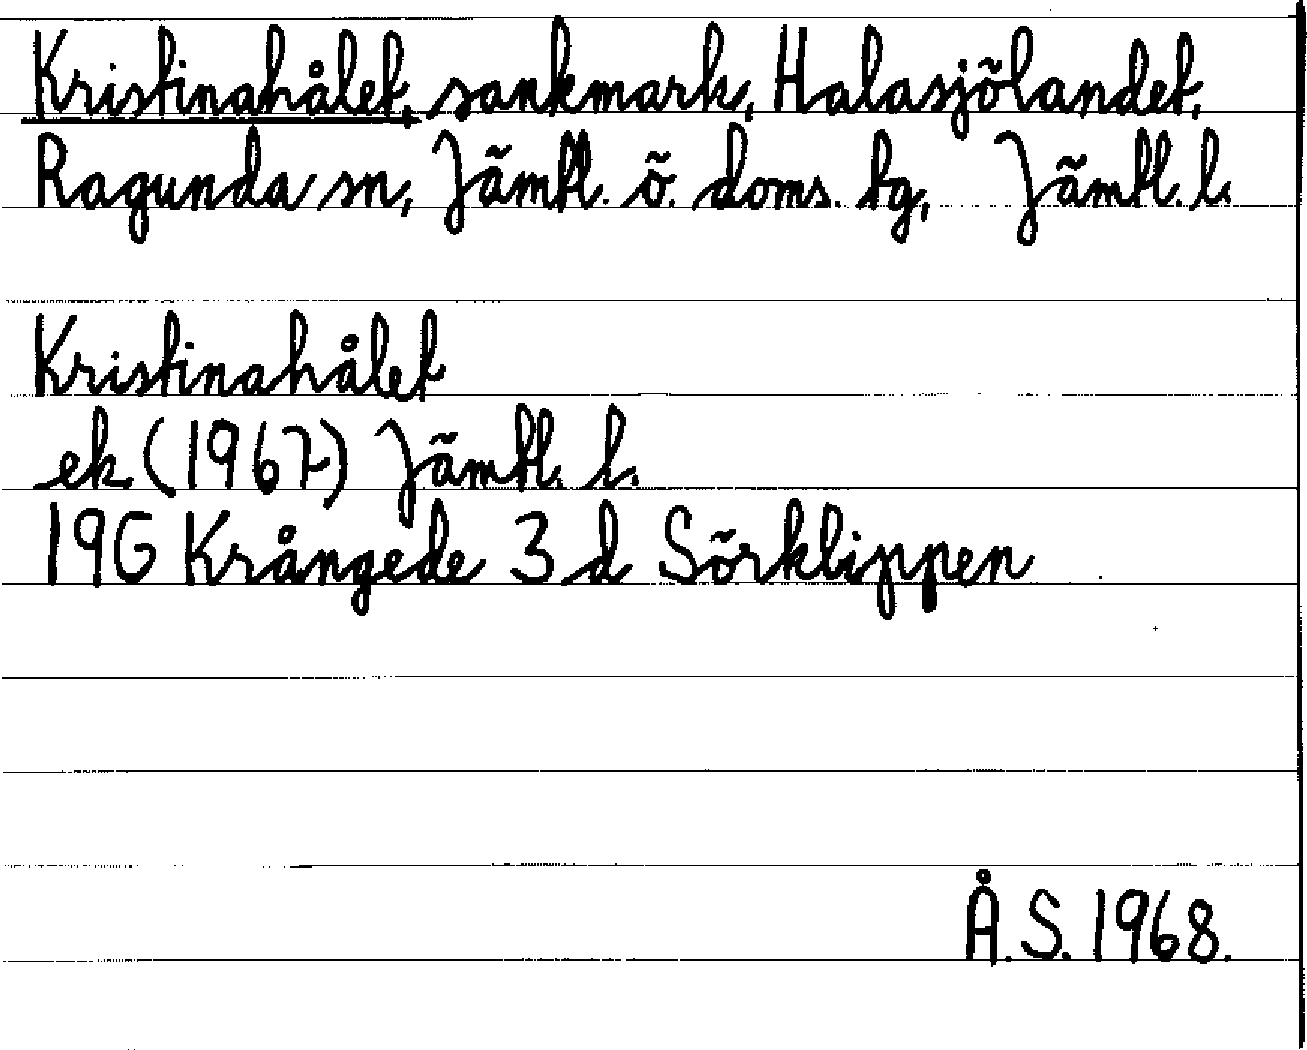 Kristinahålet, sankmark, Halasjölandet,
Ragunda sn, Jämtl. ö. doms. tg, Jämtl. l.
Kristinahålet
ek (1967) Jämtl. l.
19G Krångede 3 d Sörklippen
Å. S. 1968.